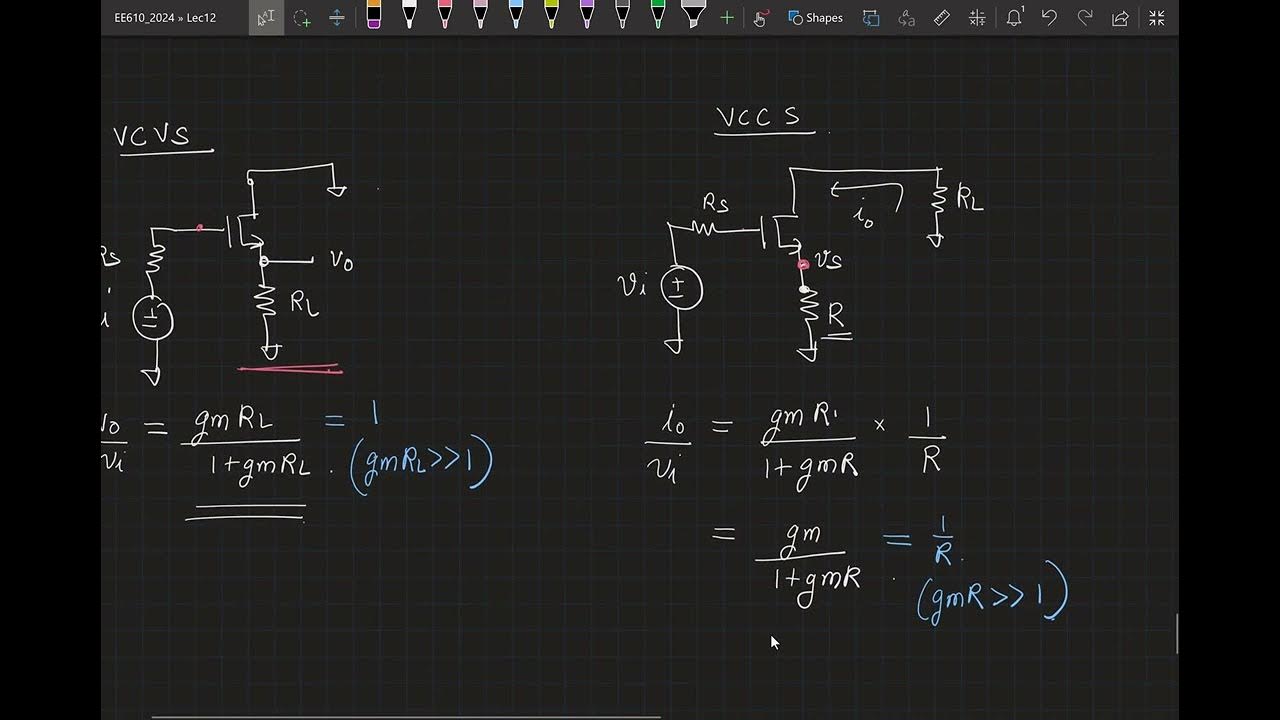 EE610_2024 » Lec12
Shapes
VCVS
Rs
i
vo
RL
vo/vi = gmRL/(1+gmRL) = 1
(gmRL>>1)
VCCS
Rs
vi
io
RL
vs
R
io/vi = gmR/(1+gmR) × 1/R
= gm/(1+gmR) = 1/R
(gmR>>1)